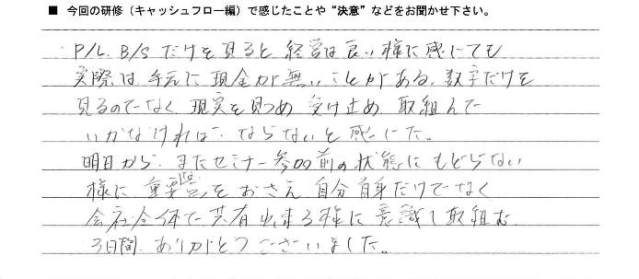 ■ 今回の研修（キャッシュフロー編）で感じたことや“決意”などをお聞かせ下さい。
P/L B/Sだけを見ると経営は良い様に感じても
実際は手元に現金が無いことがある。数字だけを
見るのでなく現実を見つめ受け止め取組んで
いかなければならないと感じた。
明日から、またセミナー参加前の状態にもどらない
様に重要点をおさえ自分自身だけでなく
会社全体で共有出来る様に意識し取組む
3日間、ありがとうございました。